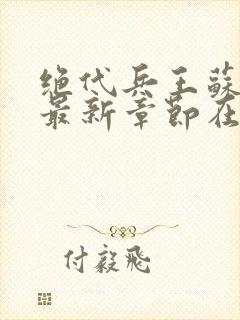 绝代兵王蘇
最新章節在
付毅飛